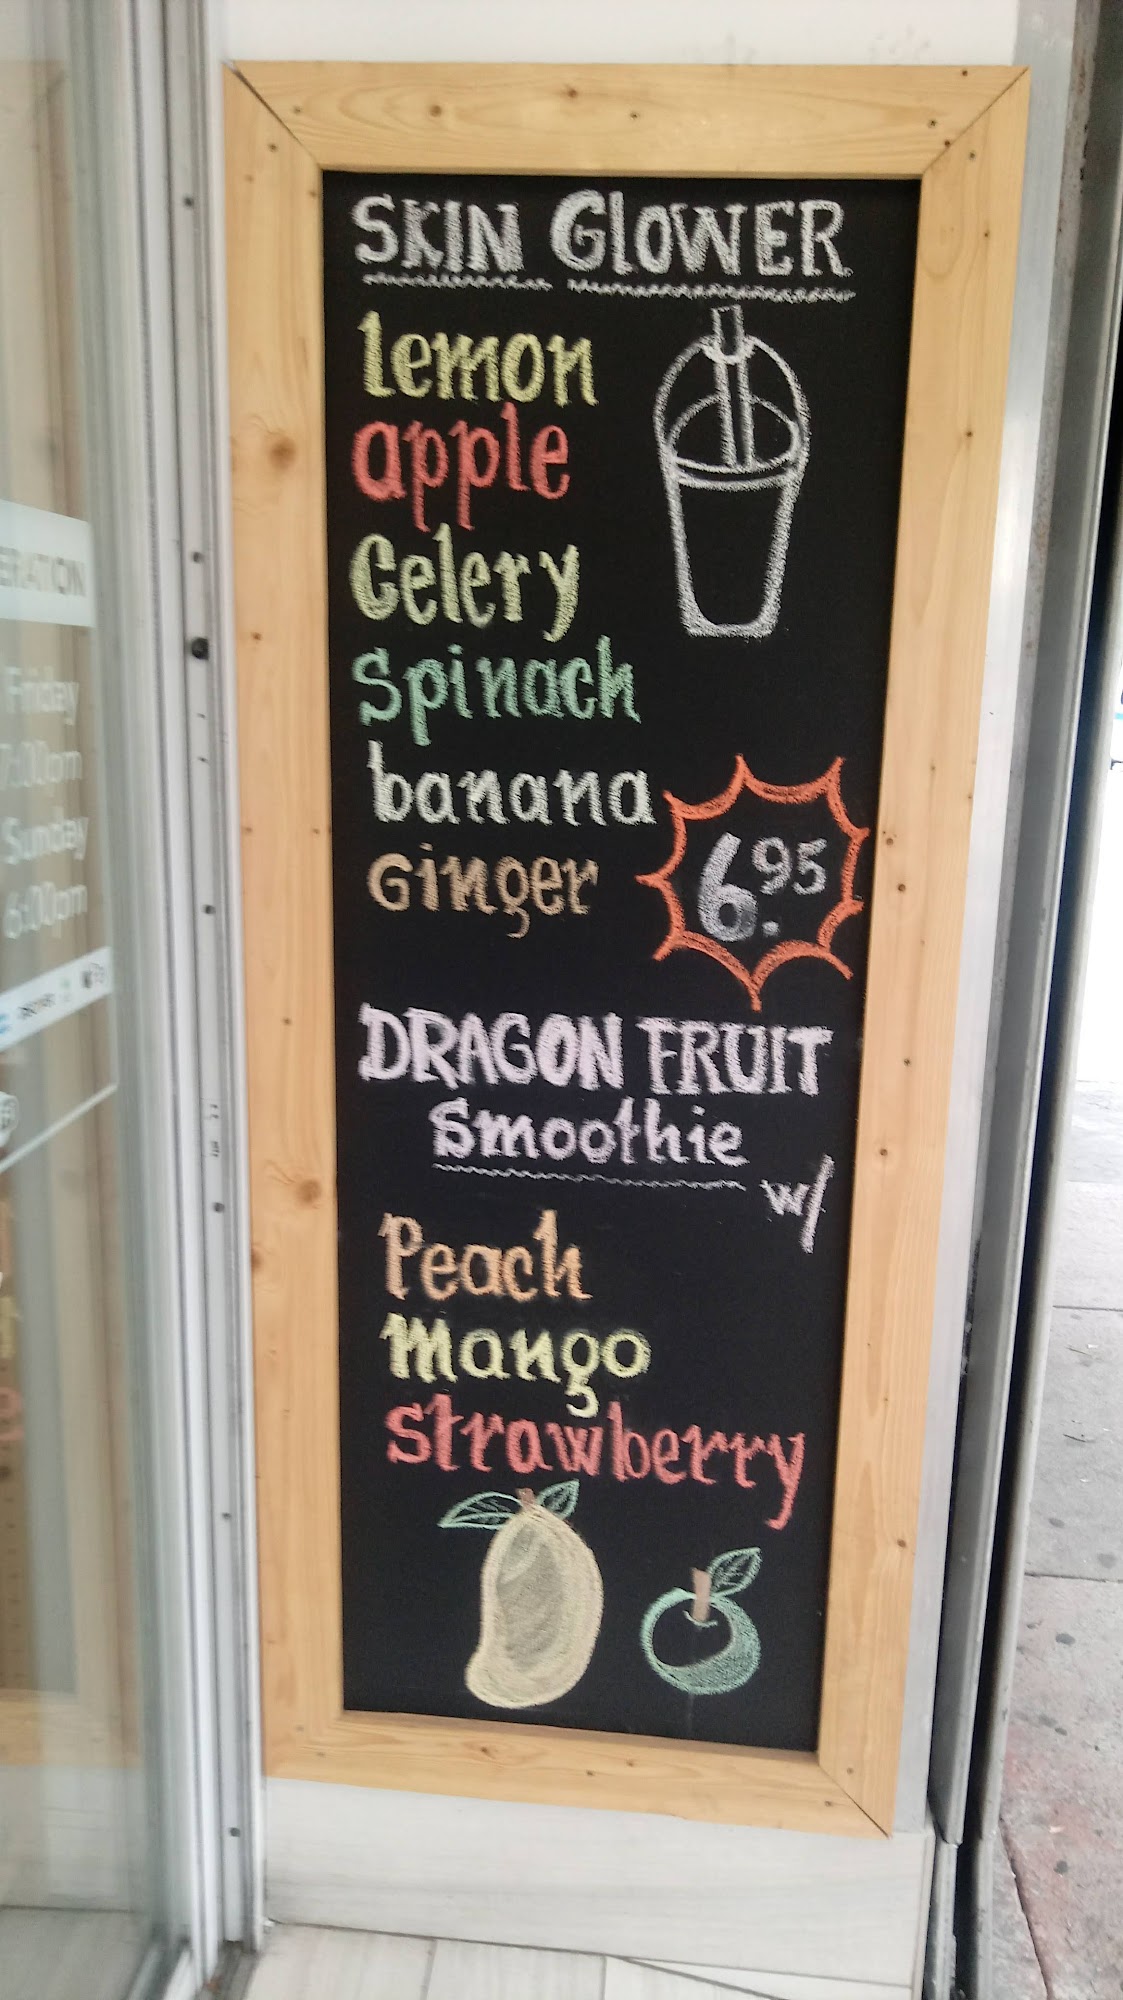 SKIN GLOWER
Lemon
apple
Celery
Spinach
banana
Ginger
6.95
DRAGON FRUIT
Smoothie
w/
Peach
Mango
Strawberry
ERATION
Friday
7:00pm
Sunday
6:00pm